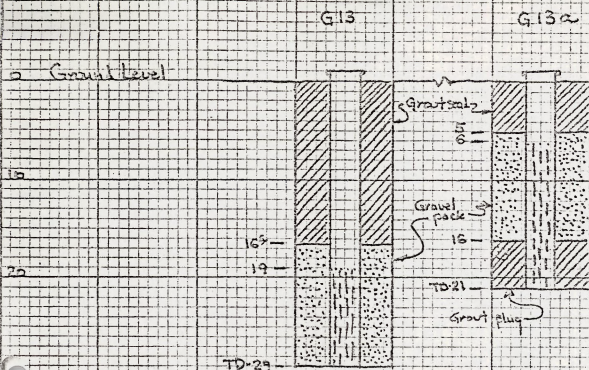 G13
G13a
0
Ground Level
Grout seal
5
6
10
Gravel
pack
16⁵
16
19
20
TD-21
Grout plug
TD-29